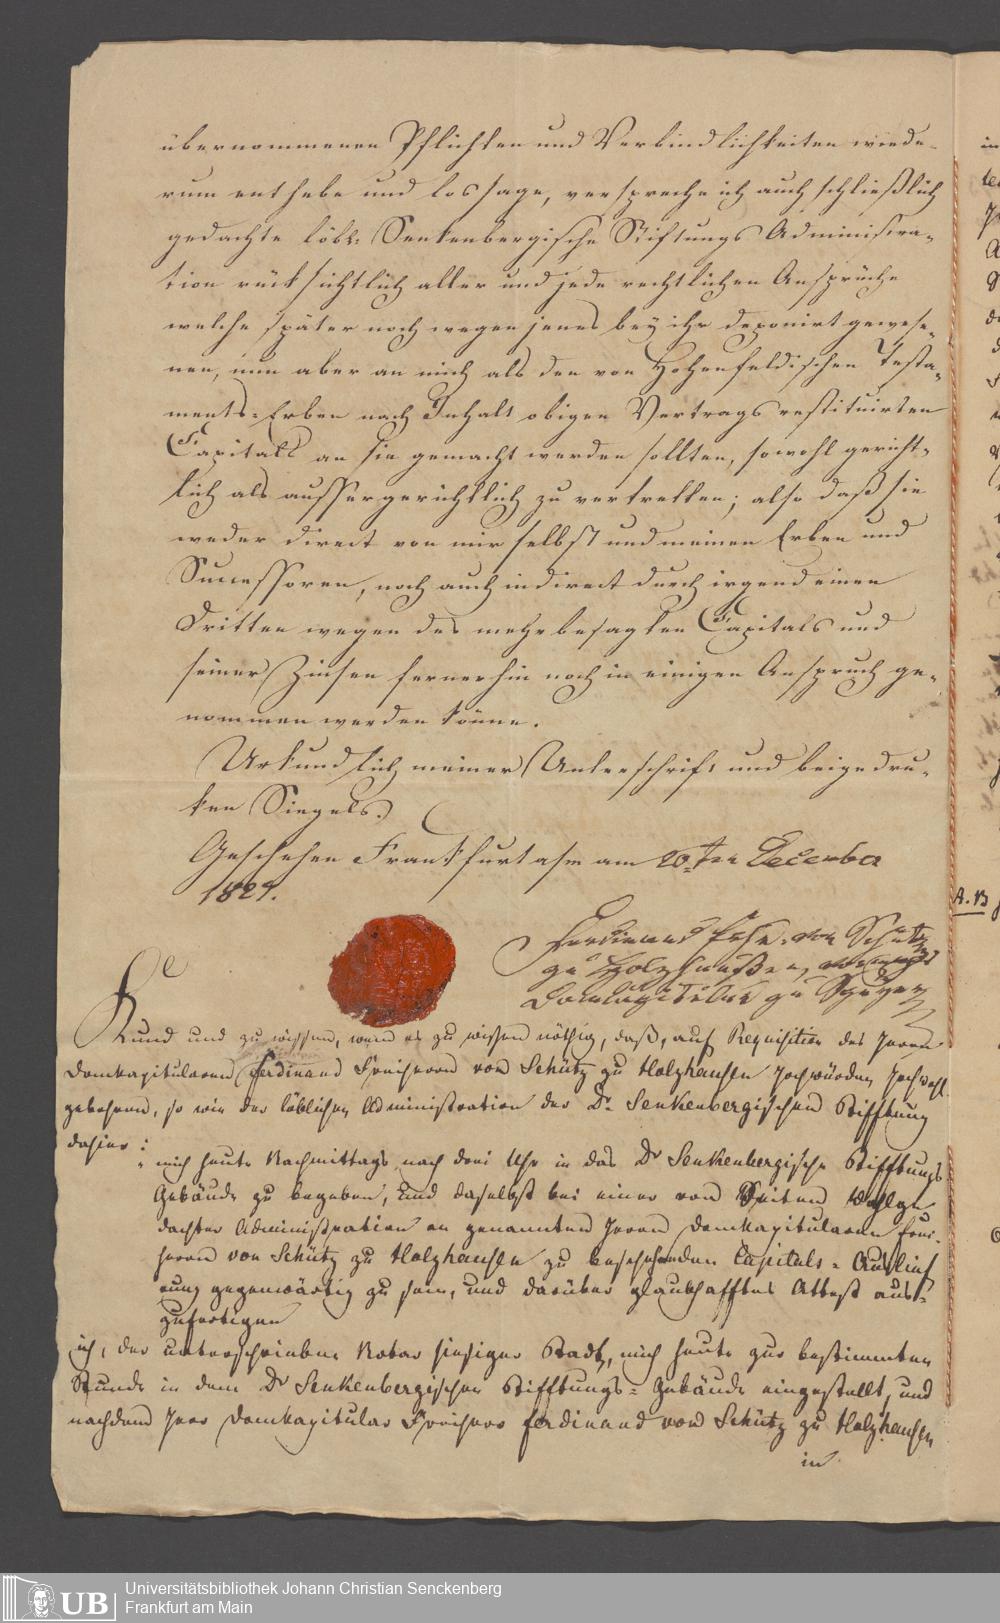 übernommenen Pflichten und Verbindlichkeiten wiede-
rum enthebe und lossage, verspreche ich auch schließlich
gedachte löbl: Senkenbergische Stiftungs Administra-
tion rücksichtlich aller und jede rechtlichen Ansprüche
welche später noch wegen jenes bey ihr deponirt gewese-
nen, nun aber an mich als den von Hohenfeldischen Testa-
ments-Erben nach Inhalt obigen Vertrags restituirten
Capitals an sie gemacht werden sollten, sowohl gericht-
lich als aussergerichtlich zu vertretten; also daß sie
weder direct von mir selbst und meinen Erben und
Successoren, noch auch indirect durch irgend einen
Dritten wegen des mehrbesagten Capitals und
seiner Zinsen fernerhin noch in einigen Anspruch ge-
nommen werden könne.
Urkundlich meiner Unterschrift und beigedru-
kten Siegels.
Geschehen Frankfurt a/m am 20ten December
1827.
Ferdinand Frhr. von Schütz
zu Holzhausen,
Domkapitular zu Speyer
Kund und zu wissen, wem es zu wissen nöthig, daß, auf Requisition des Herrn
Domkapitularen Ferdinand Freiherrn von Schütz zu Holzhausen Hochwürden Hochwohl
gebohren, so wie der löblichen Administration der Dr. Senkenbergischen Stifftung
dahier:
mich heute Nachmittags nach drei Uhr in das Dr Senkenbergische Stifftungs
Gebäude zu begeben, und daselbst bei einer von Seiten Wohlge
dachter Administration an genannten Herrn Domkapitularen Frei-
herrn von Schütz zu Holzhausen zu beschehenden Capitals-Auslief
rung gegenwärtig zu sein, und darüber glaubhafftes Attest aus-
zufertigen
ich, der unterschriebene Notar hiesiger Stadt, mich heute zur bestimmten
Stunde in dem Dr Senkenbergischen Stifftungs-Gebäude eingestellt, und
nachdem Herr Domkapitular Freiherr Ferdinand von Schütz zu Holzhausen
in
A. B
UB
Universitätsbibliothek Johann Christian Senckenberg
Frankfurt am Main